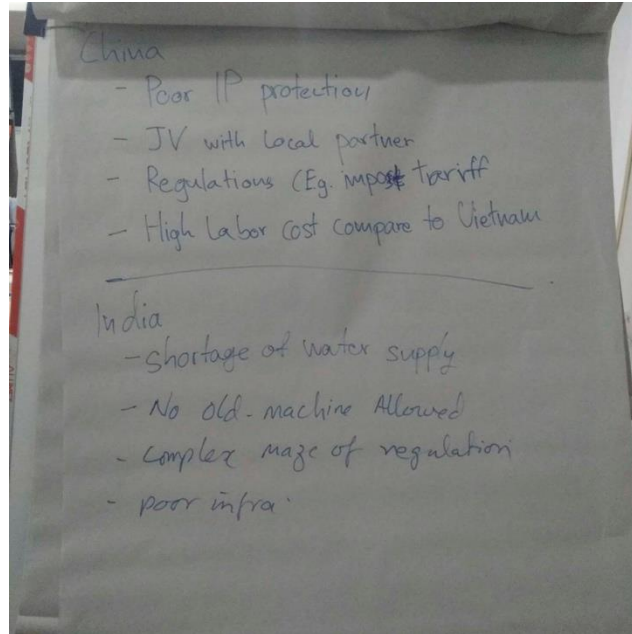 China
- Poor IP protection
- JV with Local partner
- Regulations (Eg. import tariff
- High Labor Cost compare to Vietnam
India
- Shortage of water supply
- No old-machine Allowed
- Complex maze of regulation
- poor infra.